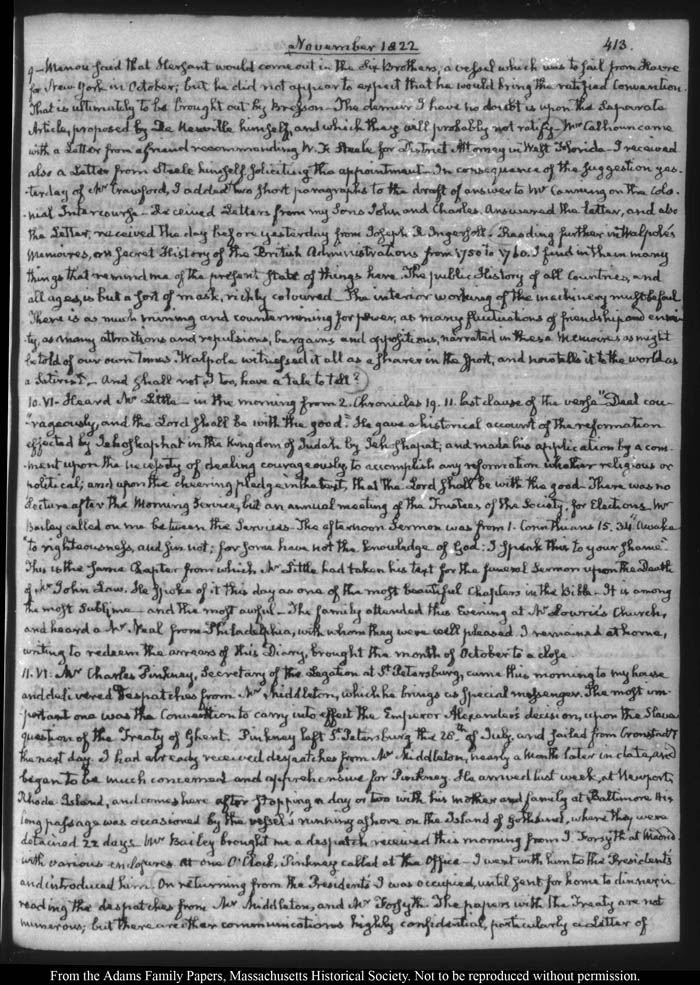 November 1822
413.
9— Menou said that Mersant would come out in the Six Brothers, a vessel which was to sail from Havre
for New York in October; but he did not appear to expect that he would bring the ratified Convention.
That is ultimately to be brought out by Bresson— The demur I have no doubt is upon the Separate
Article, proposed by De Neuville himself, and which they will probably not ratify— Mr Calhoun came
with a Letter from a friend recommending W. F. Steele for District Attorney in West Florida— I received
also a Letter from Steele himself soliciting the appointment— In consequence of the suggestion yes-
-terday of Mr Crawford, I added two short paragraphs to the draft of answer to Mr Canning on the Colo-
nial Intercourse— Received Letters from my Sons John and Charles. Answered the latter, and also
the Letter, received the day before yesterday from Joseph R. Ingersoll. Reading further in Walpole's
Memoires, or Secret History of the British Administrations from 1750 to 1760. I find in them many
things that remind me of the present State of things here. The public History of all Countries, and
all ages, is but a sort of mask, richly coloured. The interior working of the machinery must be foul.
There is as much mining and countermining for power, as many fluctuations of friendship and enmi-
ty, as many attractions and repulsions, bargains and oppositions, narrated in these Memoires as might
be told of our own times. Walpole witnessed it all as a sharer in the sport, and now tells it to the world as
a Satirist,— And shall not I too, have a tale to tell?
10. VI. Heard Mr Little— in the morning from 2. Chronicles 19. 11. last clause of the verse "Deal cou-
"rageously, and the Lord shall be with the good." He gave a historical account of the reformation
effected by Jehoshaphat in the Kingdom of Judah by Jehoshapat; and made his application by a com-
-ment upon the necessity of dealing courageously, to accomplish any reformation whether religious or
political; and upon the cheering pledge in the text, that the Lord shall be with the good. There was no
Lecture after the Morning Service, but an annual meeting of the Trustees of the Society, for Elections. Mr
Bailey called on me between the Services. The afternoon Sermon was from 1. Corinthians 15. 34. "Awake
"to righteousness, and sin not; for some have not the knowledge of God: I speak this to your shame."
This is the same Chapter from which Mr Little had taken his text for the funeral Sermon upon the Death
of Mr John Law. He spoke of it this day as one of the most beautiful Chapters in the Bible— It is among
the most Sublime— and the most awful— The family attended this Evening at Mr Lowrie's Church,
and heard a Mr Neal from Philadelphia, with whom they were well pleased. I remained at home,
writing to redeem the arrears of this Diary, brought the month of October to a close.
11. VI: Mr Charles Pinkney, Secretary of the Legation at St Petersburg, came this morning to my house
and delivered Despatches from Mr Middleton, which he brings as Special messenger. The most im-
portant one was the Convention to carry into effect the Emperor Alexander's decision, upon the Slave
question of the Treaty of Ghent. Pinkney left St Petersburg the 25th of July and sailed from Cronstadt
the next day. I had already received despatches from Mr Middleton, nearly a month later in date, and
began to be much concerned and apprehensive for Pinkney. He arrived last week, at Newport,
Rhode Island, and comes here after stopping a day or two with his mother and family at Baltimore. His
long passage was occasioned by the vessel's running ashore on the Island of Gothland, where they were
detained 22 days. Mr Bailey brought me a despatch received this morning from J. Forsyth at Madrid
with various enclosures. At one O'Clock, Pinkney called at the Office— I went with him to the President's
and introduced him. On returning from the President's I was occupied, until sent for home to dinner, in
reading the despatches from Mr Middleton, and Mr Forsyth. The papers with the Treaty are not
numerous; but there are other communications highly confidential, particularly a Letter of
From the Adams Family Papers, Massachusetts Historical Society. Not to be reproduced without permission.